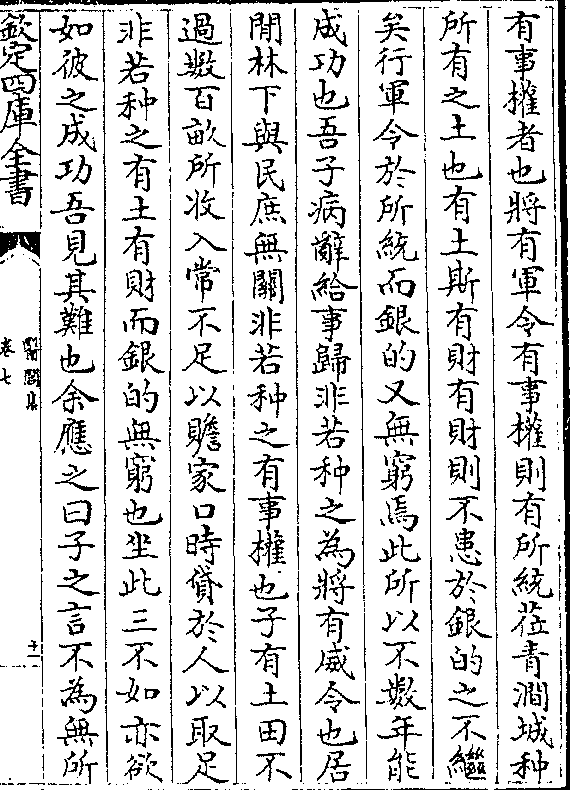 有事權者也將有軍令有事權則有所統莅青澗城种
所有之土也有土斯有財有財則不患於銀的之不繼
矣行軍令於所統而銀的又無窮焉此所以不數年能
成功也吾子病辭給事歸非若种之為將有威令也居
閒林下與民庶無關非若种之有事權也子有土田不
過數百畝所收入常不足以贍家口時貸於人以取足
非若种之有土有財而銀的無窮也坐此三不如亦欲
如彼之成功吾見其難也余應之曰子之言不為無所
欽定四庫全書
醫閭集
卷七
十一